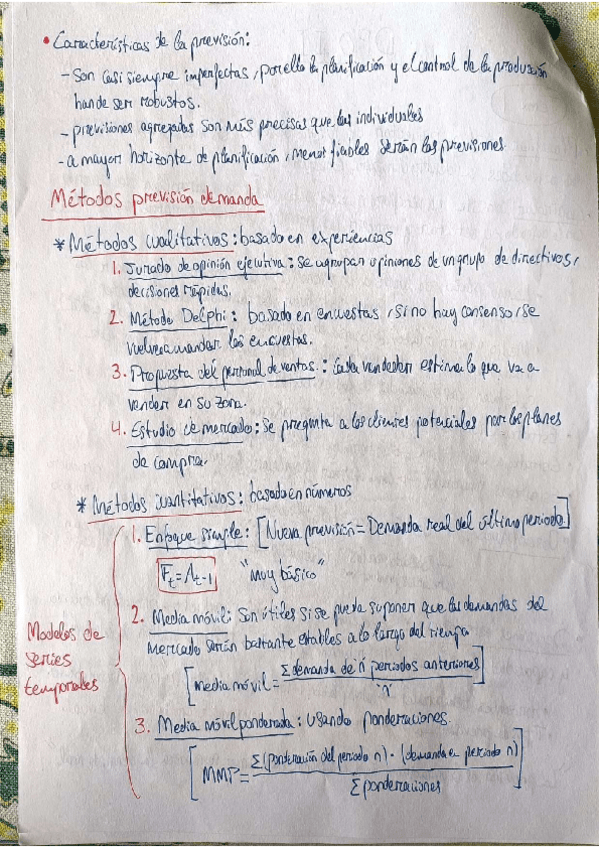 • Características de la previsión:
- Son casi siempre imperfectas, por ello la planificación y el control de la producción
han de ser robustos.
- previsiones agregadas son más precisas que las individuales
- a mayor horizonte de planificación, menor fiables serán las previsiones
Métodos previsión demanda
* Métodos cualitativos: basado en experiencias
1. Jurado de opinión ejecutiva: se agrupan opiniones de un grupo de directivos,
decisiones rápidas.
2. Método Delphi: basado en encuestas, si no hay consenso, se
vuelve a mandar las encuestas.
3. Propuesta del personal de ventas.: Cada vendedor estima lo que va a
vender en su zona.
4. Estudio de mercado: se pregunta a los clientes potenciales por los planes
de compra.
* Métodos cuantitativos: basado en números
1. Enfoque simple: [Nueva previsión = Demanda real del último periodo]
Ft = At-1 "muy básico"
2. Media móvil: Son útiles si se puede suponer que las demandas del
mercado serán bastante estables a lo largo del tiempo
Modelos de
series
temporales
[media móvil = Σ demanda de n periodos anteriores / n]
3. Media móvil ponderada: usando ponderaciones.
[MMP = Σ(ponderación del periodo n) · (demanda en periodo n) / Σ ponderaciones]